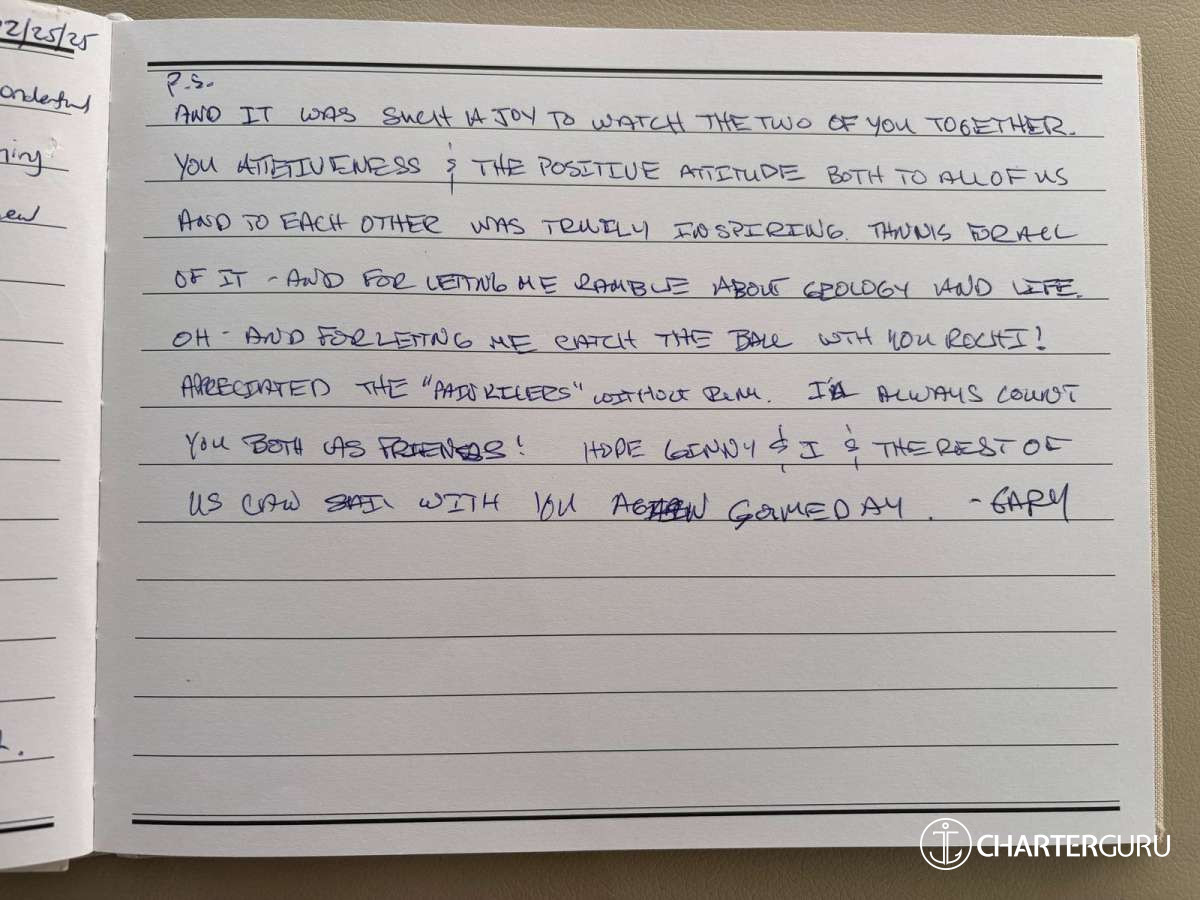 2/25/25
onderful
ning
ew
P.S.
AND IT WAS SUCH A JOY TO WATCH THE TWO OF YOU TOGETHER.
YOU ATTETIVENESS & THE POSITIVE ATTITUDE BOTH TO ALL OF US
AND TO EACH OTHER WAS TRUILY INSPIRING. THANKS FOR ALL
OF IT - AND FOR LETTING ME RAMBLE ABOUT GEOLOGY AND LIFE.
OH - AND FOR LETTNG ME CATCH THE BALL WITH YOU ROCHI!
APPRECIATED THE "PAINKILLERS" WITHOUT RUM. I'LL ALWAYS COUNT
YOU BOTH AS FRIENDS! HOPE GINNY & I & THE REST OF
US CAN SAIL WITH YOU AGAIN SOMEDAY. - GARY
CHARTERGURU